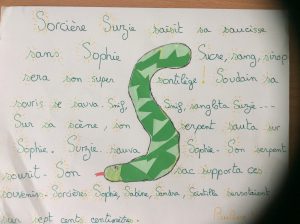 Sorcière Suzie saisit sa saucisse
sans Sophie Sucre, sang, sirop
sera son super sortilège! Soudain sa
souris se sauva. Snif, Snif, sanglota Suzie---
Sur sa scène, son serpent sauta sur
Sophie. Suzie sauva Sophie. Son serpent
sourit. Son sac supporta ces
souvenirs. Sorcières Sophie, Sabine, Sandra,
sur sept cents centimètres.